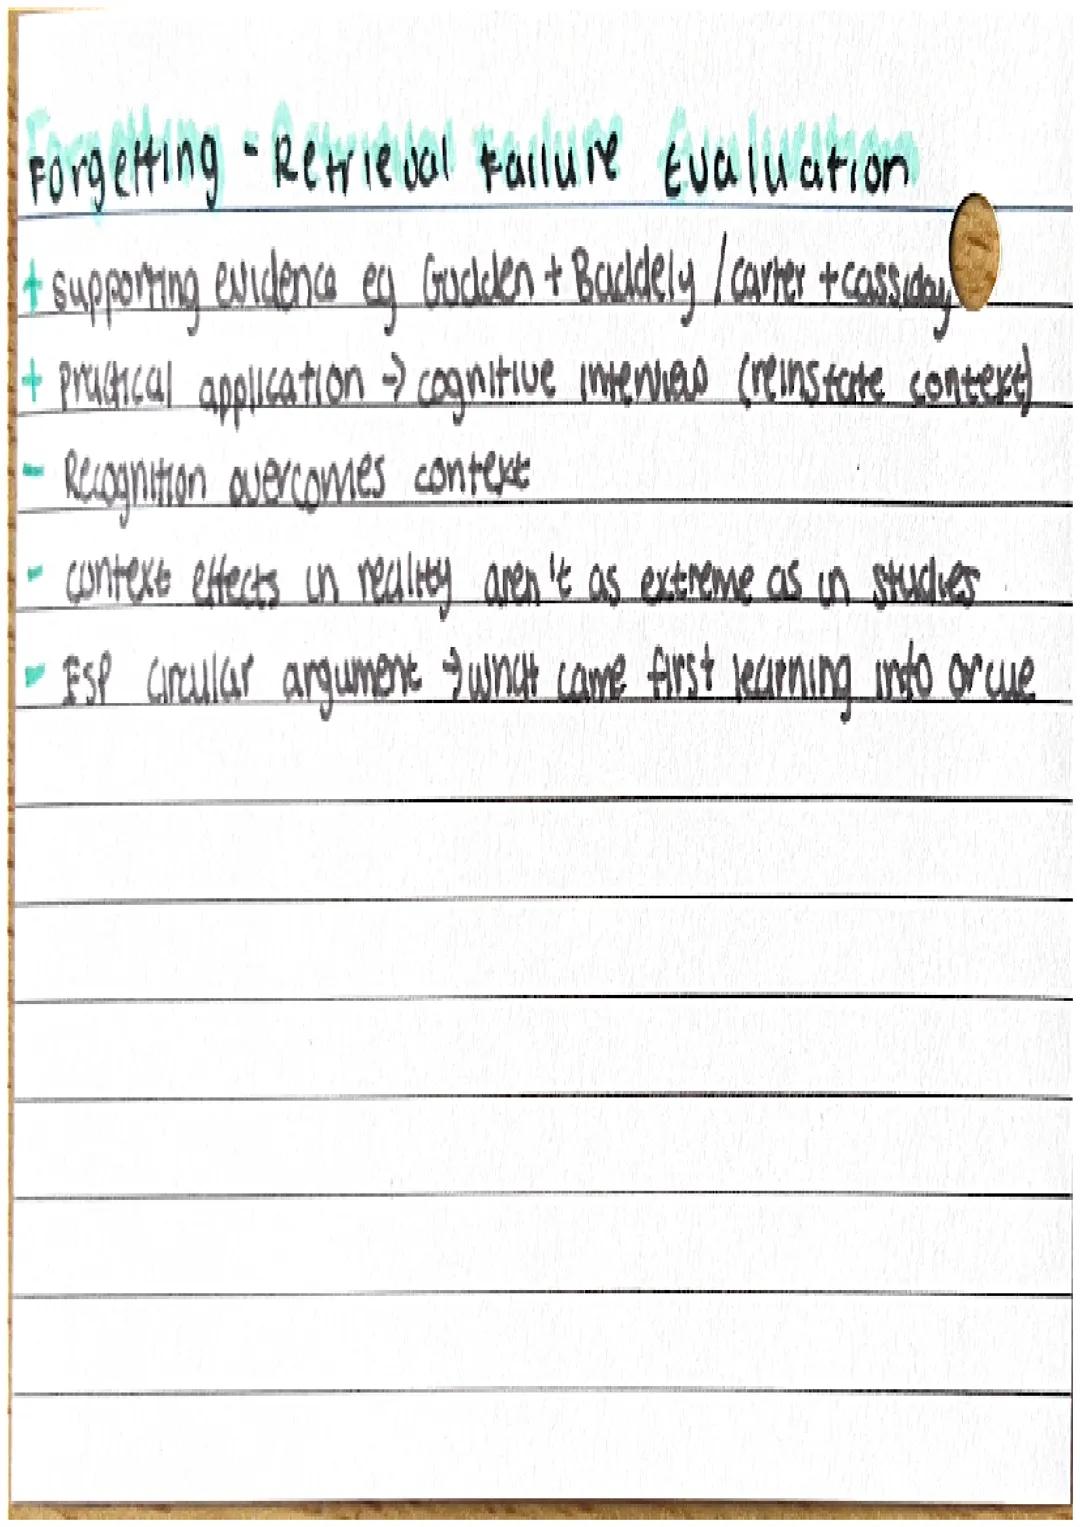 Forgetting - Retrieval Failure Evaluation
+ supporting evidence eg Godden + Baddely / carter + cassiday
+ practical application → cognitive interview (reinstate context)
- Recognition overcomes context
- context effects in reality aren't as extreme as in studies
- ESP circular argument → what came first learning info or cue